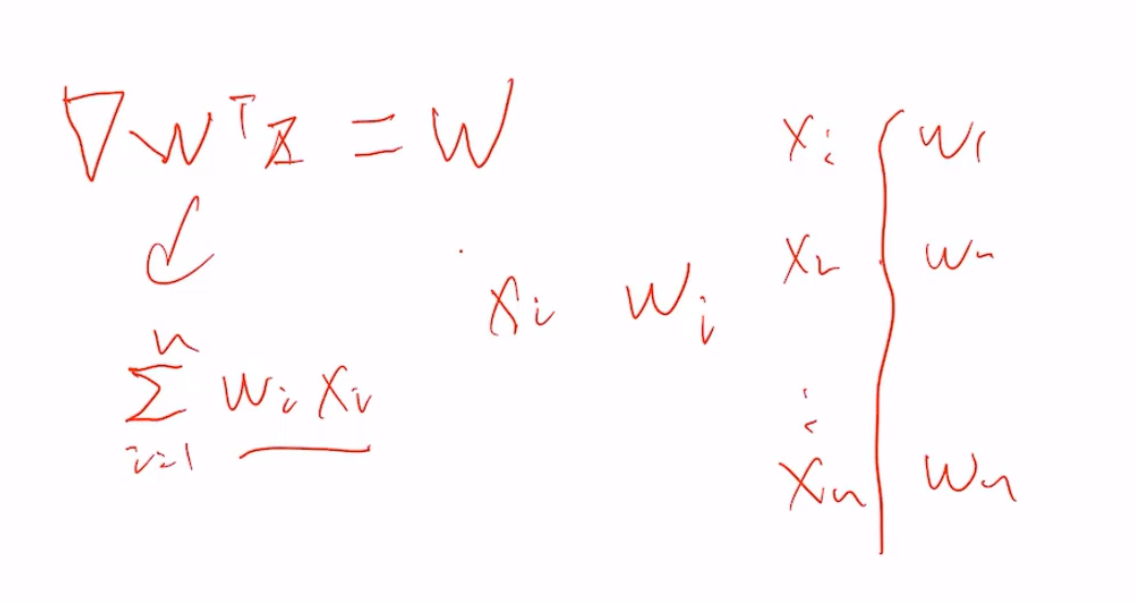 ∇wᵀx = w
n
∑ wᵢ xᵢ
i=1
xᵢ wᵢ
xᵢ w₁
x₂ w₂
⋮
xₙ wₙ